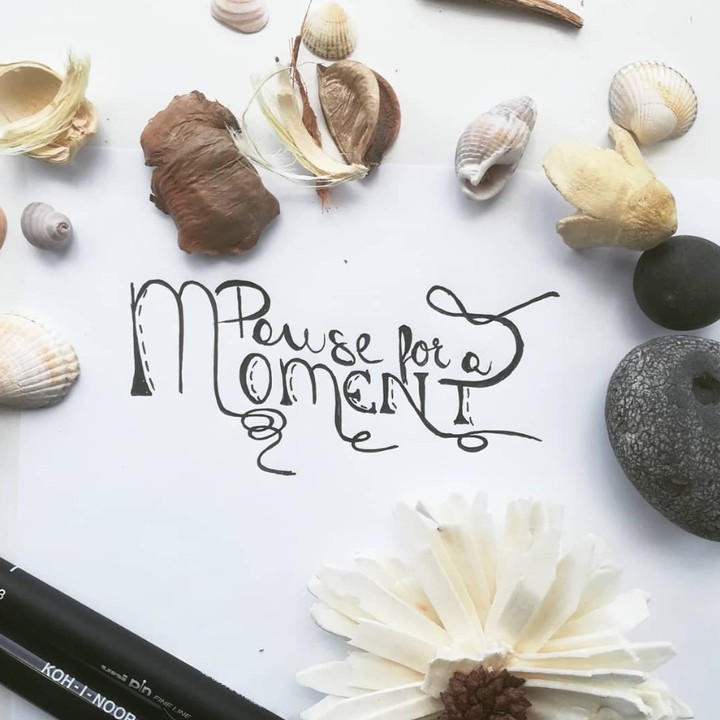 Pause for a
MOMENT
KOH-I-NOOR
uni Pin FINE LINE